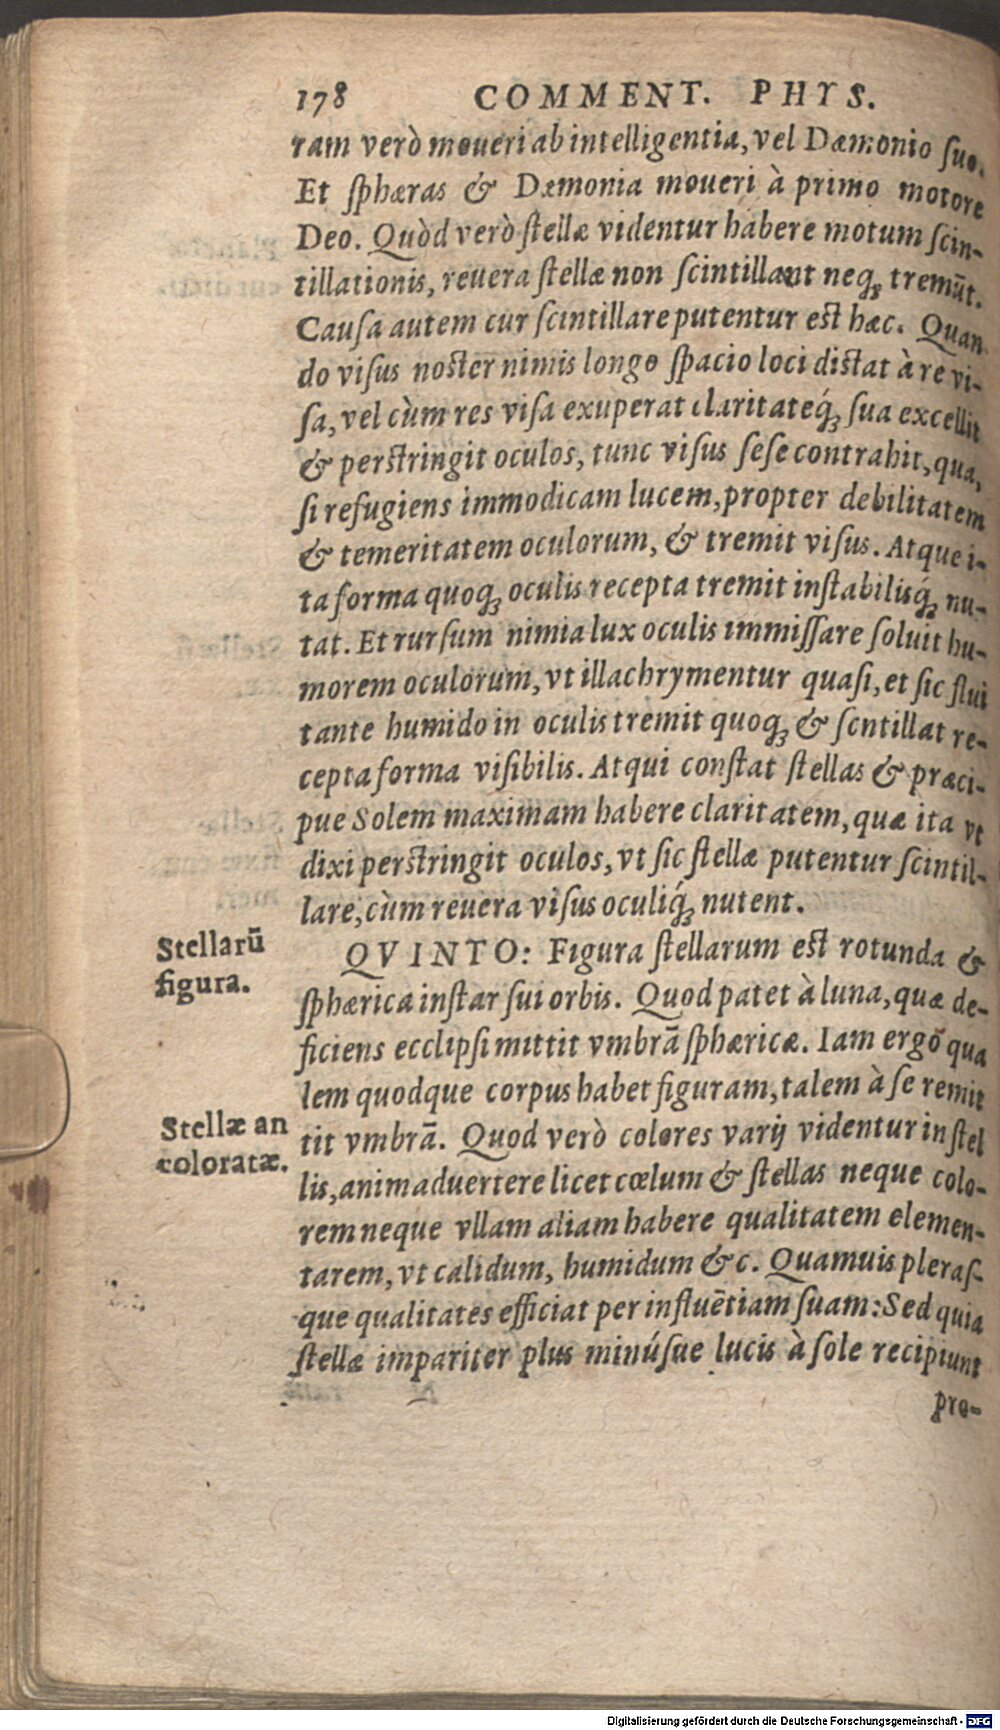 178 COMMENT. PHYS.
ram verò moueri ab intelligentia, vel Dæmonio suo.
Et sphæras & Dæmonia moueri à primo motore
Deo. Quòd verò stellæ videntur habere motum scin-
tillationis, reuera stellæ non scintillant neq; tremũt.
Causa autem cur scintillare putentur est hæc. Quan
do visus noster nimis longo spacio loci distat à re vi-
sa, vel cùm res visa exuperat claritateq́; sua excellit
& perstringit oculos, tunc visus sese contrahit, qua,
si refugiens immodicam lucem, propter debilitatem
& temeritatem oculorum, & tremit visus. Atque i-
ta forma quoq; oculis recepta tremit instabilisq́; nu-
tat. Et rursum nimia lux oculis immissa re soluit hu-
morem oculorum, vt illachrymentur quasi, et sic flui
tante humido in oculis tremit quoq; & scntillat re-
cepta forma visibilis. Atqui constat stellas & præci-
pue Solem maximam habere claritatem, quæ ita vt
dixi perstringit oculos, vt sic stellæ putentur scintil-
lare, cùm reuera visus oculiq́; nutent.
Stellarũ
figura.
QVINTO: Figura stellarum est rotunda &
sphærica instar sui orbis. Quod patet à luna, quæ de-
ficiens ecclipsi mittit vmbrã sphæricæ. Iam ergo qua
lem quodque corpus habet figuram, talem à se remit
Stellæ an
coloratæ.
tit vmbrã. Quod verò colores varij videntur in stel
lis, animaduertere licet cœlum & stellas neque colo-
rem neque vllam aliam habere qualitatem elemen-
tarem, vt calidum, humidum &c. Quamuis pleras-
que qualitates efficiat per influẽtiam suam: Sed quia
stellæ impariter plus minúsue lucis à sole recipiunt
pro-
Digitalisierung gefördert durch die Deutsche Forschungsgemeinschaft - DFG